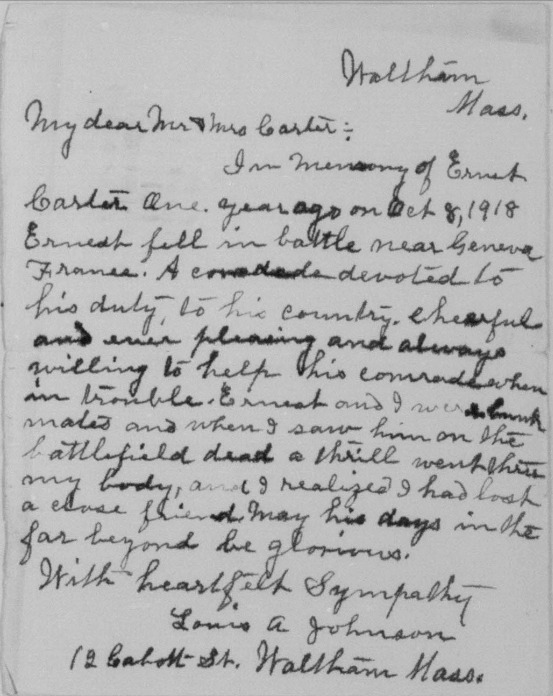 Waltham
Mass.
My dear Mr & Mrs Carter:
In Memory of Ernest
Carter One. year ago on Oct 8, 1918
Ernest fell in battle near Geneva
France. A comrade devoted to
his duty, to his country. Cheerful
and ever pleasing and always
willing to help his comrades when
in trouble. Ernest and I were bunk
mates and when I saw him on the
battlefield dead a thrill went thru
my body, and I realized I had lost
a close friend. May his days in the
far beyond be glorious.
With heartfelt Sympathy
Louis A Johnson
12 Cabott St. Waltham Mass.